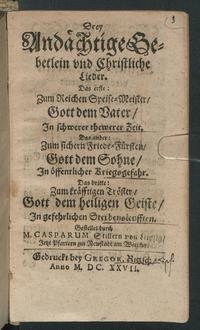 Drey
Andächtige Ge-
betlein vnd Christliche
Lieder.
Das erste:
Zum Reichen Speise-Meister/
Gott dem Vater/
In schwerer thewerer Zeit.
Das ander:
Zum sichern Friede-Fürsten/
Gott dem Sohne/
In öffentlicher Kriegsgefahr.
Das dritte:
Zum kräfftigen Tröster/
Gott dem heiligen Geiste/
In gefehrlichen
Gestellet durch
M. CASPARUM Stillern von
Jetzt Pfarrern zur Newstadt am
Gedruckt bey GREGOR.
Anno M. DC. XXVII.